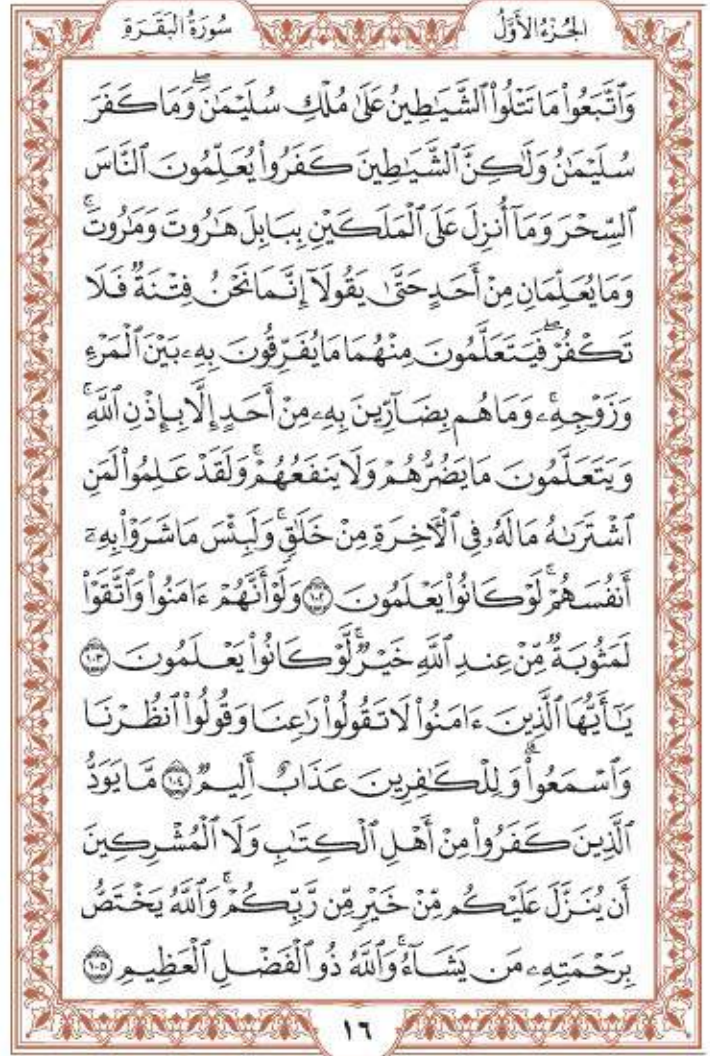 سُورَةُ الْبَقَرَةِ
الجُزْءُ الأَوَّلُ
وَٱتَّبَعُوا۟ مَا تَتْلُوا۟ ٱلشَّيَـٰطِينُ عَلَىٰ مُلْكِ سُلَيْمَـٰنَ ۖ وَمَا كَفَرَ
سُلَيْمَـٰنُ وَلَـٰكِنَّ ٱلشَّيَـٰطِينَ كَفَرُوا۟ يُعَلِّمُونَ ٱلنَّاسَ
ٱلسِّحْرَ وَمَآ أُنزِلَ عَلَى ٱلْمَلَكَيْنِ بِبَابِلَ هَـٰرُوتَ وَمَـٰرُوتَ ۚ
وَمَا يُعَلِّمَانِ مِنْ أَحَدٍ حَتَّىٰ يَقُولَآ إِنَّمَا نَحْنُ فِتْنَةٌ فَلَا
تَكْفُرْ ۖ فَيَتَعَلَّمُونَ مِنْهُمَا مَا يُفَرِّقُونَ بِهِۦ بَيْنَ ٱلْمَرْءِ
وَزَوْجِهِۦ ۚ وَمَا هُم بِضَآرِّينَ بِهِۦ مِنْ أَحَدٍ إِلَّا بِإِذْنِ ٱللَّهِ ۚ
وَيَتَعَلَّمُونَ مَا يَضُرُّهُمْ وَلَا يَنفَعُهُمْ ۚ وَلَقَدْ عَلِمُوا۟ لَمَنِ
ٱشْتَرَىٰهُ مَا لَهُۥ فِى ٱلْـَٔاخِرَةِ مِنْ خَلَـٰقٍ ۚ وَلَبِئْسَ مَا شَرَوْا۟ بِهِۦٓ
أَنفُسَهُمْ ۚ لَوْ كَانُوا۟ يَعْلَمُونَ ١٠٢ وَلَوْ أَنَّهُمْ ءَامَنُوا۟ وَٱتَّقَوْا۟
لَمَثُوبَةٌ مِّنْ عِندِ ٱللَّهِ خَيْرٌ ۖ لَّوْ كَانُوا۟ يَعْلَمُونَ ١٠٣
يَـٰٓأَيُّهَا ٱلَّذِينَ ءَامَنُوا۟ لَا تَقُولُوا۟ رَٰعِنَا وَقُولُوا۟ ٱنظُرْنَا
وَٱسْمَعُوا۟ ۗ وَلِلْكَـٰفِرِينَ عَذَابٌ أَلِيمٌ ١٠٤ مَّا يَوَدُّ
ٱلَّذِينَ كَفَرُوا۟ مِنْ أَهْلِ ٱلْكِتَـٰبِ وَلَا ٱلْمُشْرِكِينَ
أَن يُنَزَّلَ عَلَيْكُم مِّنْ خَيْرٍ مِّن رَّبِّكُمْ ۗ وَٱللَّهُ يَخْتَصُّ
بِرَحْمَتِهِۦ مَن يَشَآءُ ۚ وَٱللَّهُ ذُو ٱلْفَضْلِ ٱلْعَظِيمِ ١٠٥
١٦